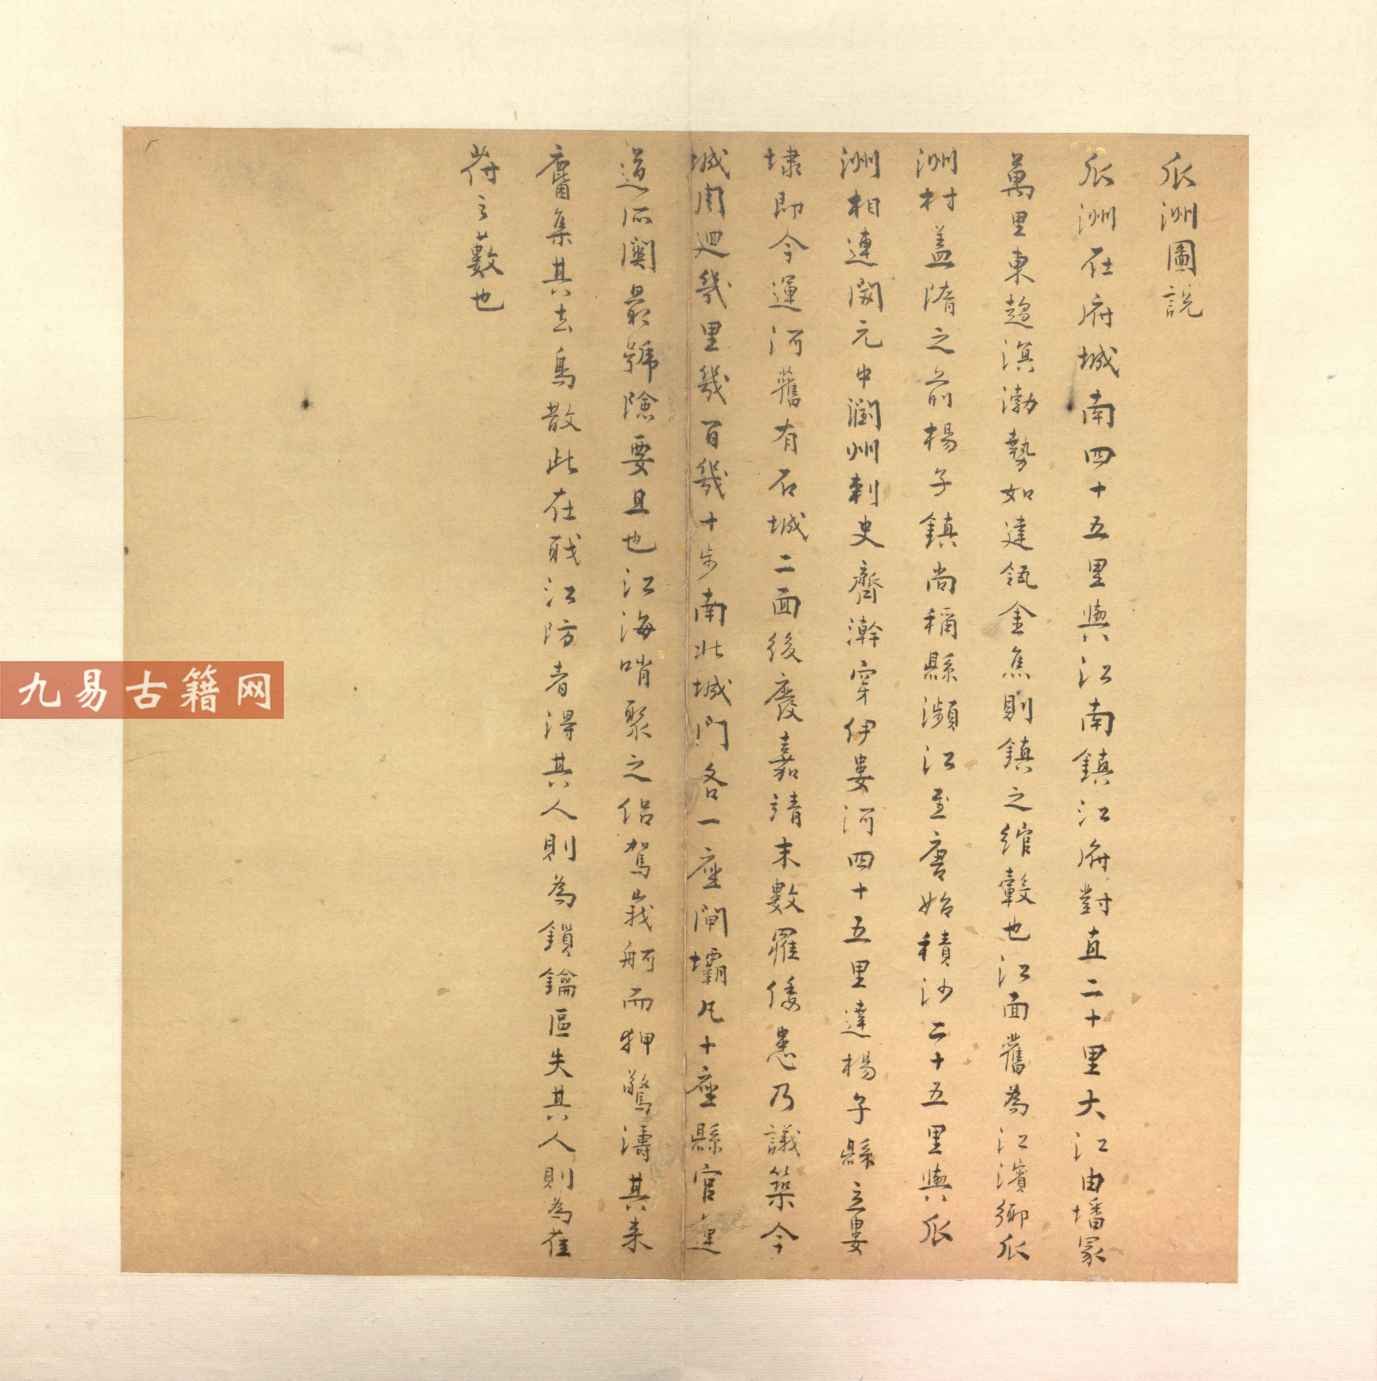 瓜洲圖説
瓜洲在府城南四十五里與江南鎮江府對直二十里大江由墦冢
萬里東趨溟渤勢如建瓴金焦則鎮之綰轂也江面舊為江濱鄉瓜
洲村蓋隋之前楊子鎮尚稱縣瀕江至唐始積沙二十五里與瓜
洲相連開元中潤州刺史齊澣穿伊婁河四十五里達楊子縣立婁
埭即今運河舊有石城二面後廢嘉靖末數罹倭患乃議築今
城周迴幾里幾百幾十步南北城門各一座閘壩凡十座縣官運
道所關最號險要且也江海哨聚之侶駕峩舸而狎驚濤其来
麕集其去鳥散此在職江防者得其人則為鎖鑰區失其人則為萑
苻之藪也
九易古籍网